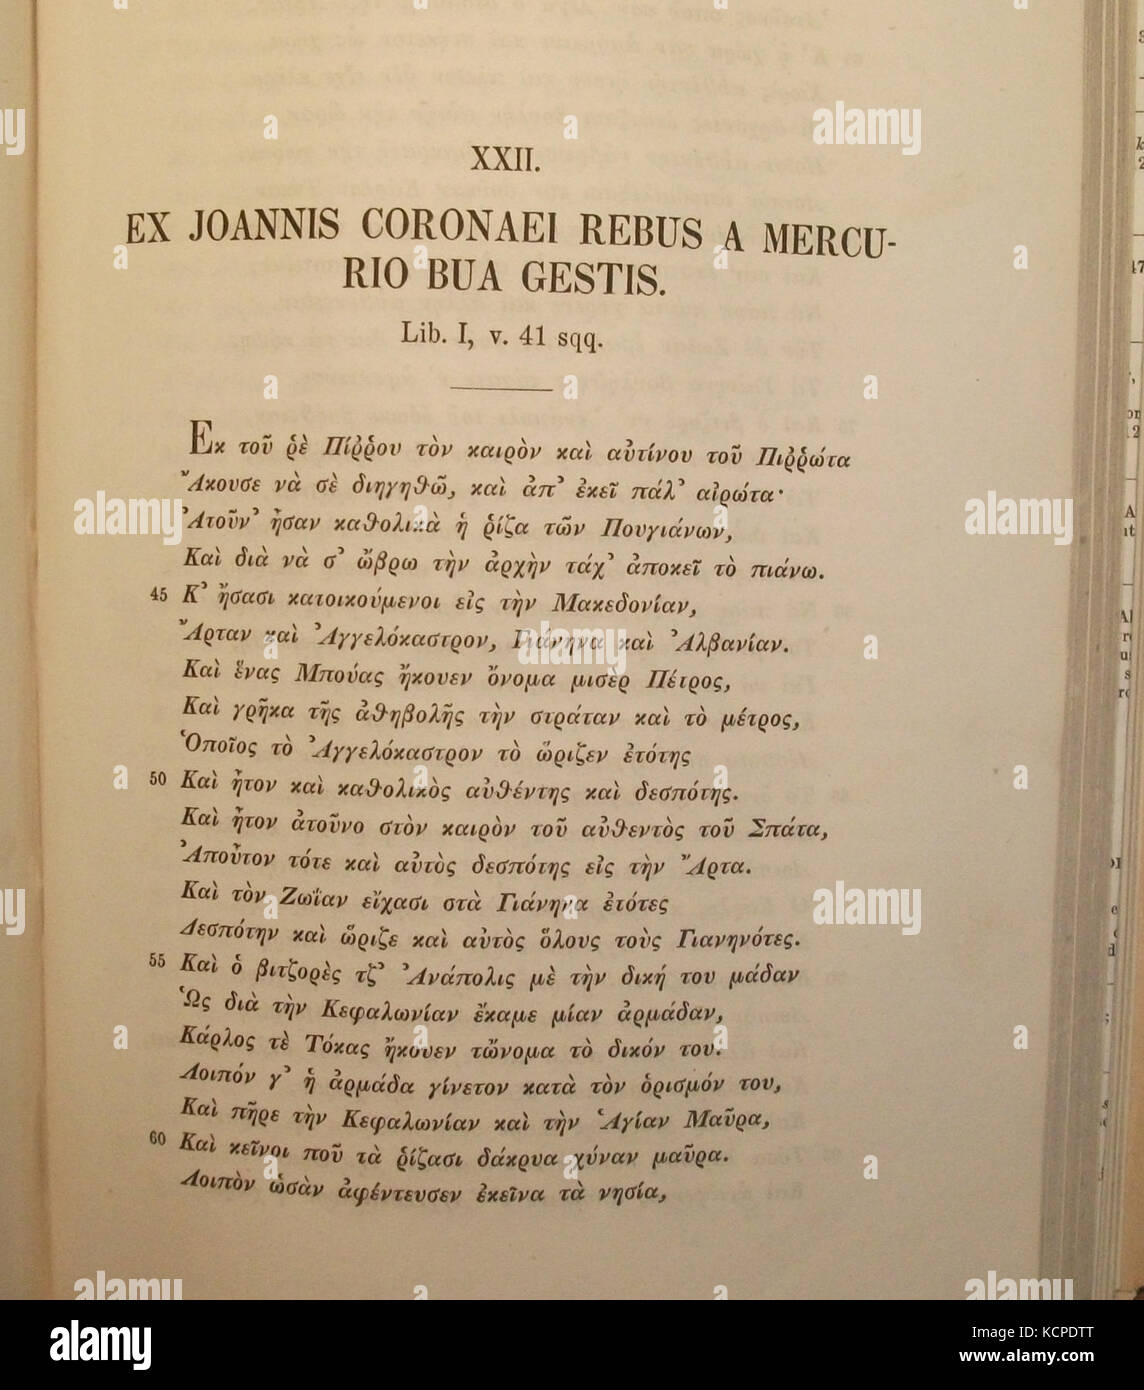 XXII.
EX JOANNIS CORONAEI REBUS A MERCU-
RIO BUA GESTIS.
Lib. I, v. 41 sqq.
Ἐκ τοῦ ῥὲ Πίῤῥου τὸν καιρὸν καὶ αὐτίνου τοῦ Πιῤῥώτα
Ἄκουσε νὰ σὲ διηγηθῶ, καὶ ἀπ’ ἐκεῖ πάλ’ αἰρώτα·
Ἀτοῦν’ ἦσαν καθολικὰ ἡ ῥίζα τῶν Πουγιάνων,
Καὶ διὰ νὰ σ’ ὤβρω τὴν ἀρχὴν τάχ’ ἀποκεῖ τὸ πιάνω.
45 Κ’ ἤσασι κατοικούμενοι εἰς τὴν Μακεδονίαν,
Ἄρταν καὶ Ἀγγελόκαστρον, Γιάνηνα καὶ Ἀλβανίαν.
Καὶ ἕνας Μπούας ἤκουεν ὄνομα μισὲρ Πέτρος,
Καὶ γρῆκα τῆς ἀθηβολῆς τὴν στράταν καὶ τὸ μέτρος,
Ὁποῖος τὸ Ἀγγελόκαστρον τὸ ὥριζεν ἐτότης
50 Καὶ ἦτον καὶ καθολικὸς αὐθέντης καὶ δεσπότης.
Καὶ ἦτον ἀτοῦνο στὸν καιρὸν τοῦ αὐθεντὸς τοῦ Σπάτα,
Ἀποῦτον τότε καὶ αὐτὸς δεσπότης εἰς τὴν Ἄρτα.
Καὶ τὸν Ζωΐαν εἴχασι στὰ Γιάνηνα ἐτότες
Δεσπότην καὶ ὥριζε καὶ αὐτὸς ὅλους τοὺς Γιανηνότες.
55 Καὶ ὁ βιτζορὲς τζ’ Ἀνάπολις μὲ τὴν δική του μάδαν
Ὡς διὰ τὴν Κεφαλωνίαν ἔκαμε μίαν ἀρμάδαν,
Κάρλος τὲ Τόκας ἤκουεν τὤνομα τὸ δικόν του.
Λοιπόν γ’ ἡ ἀρμάδα γίνετον κατὰ τὸν ὁρισμόν του,
Καὶ πῆρε τὴν Κεφαλωνίαν καὶ τὴν Ἁγίαν Μαῦρα,
60 Καὶ κεῖνοι ποῦ τὰ ῥίζασι δάκρυα χύναν μαῦρα.
Λοιπὸν ὡσὰν ἀφέντευσεν ἐκεῖνα τὰ νησία,
alamy
Image ID: KCPDTT
www.alamy.com